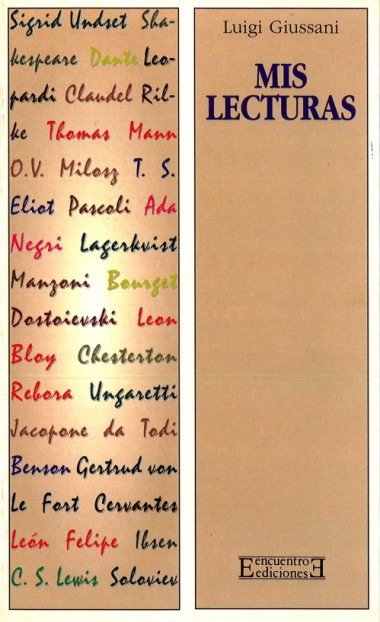 Sigrid Undset Sha-
kespeare Dante Leo-
pardi Claudel Ril-
ke Thomas Mann
O.V. Milosz T. S.
Eliot Pascoli Ada
Negri Lagerkvist
Manzoni Bourget
Dostoievski Leon
Bloy Chesterton
Rebora Ungaretti
Jacopone da Todi
Benson Gertrud von
Le Fort Cervantes
León Felipe Ibsen
C. S. Lewis Soloviev
Luigi Giussani
MIS
LECTURAS
encuentro
ediciones